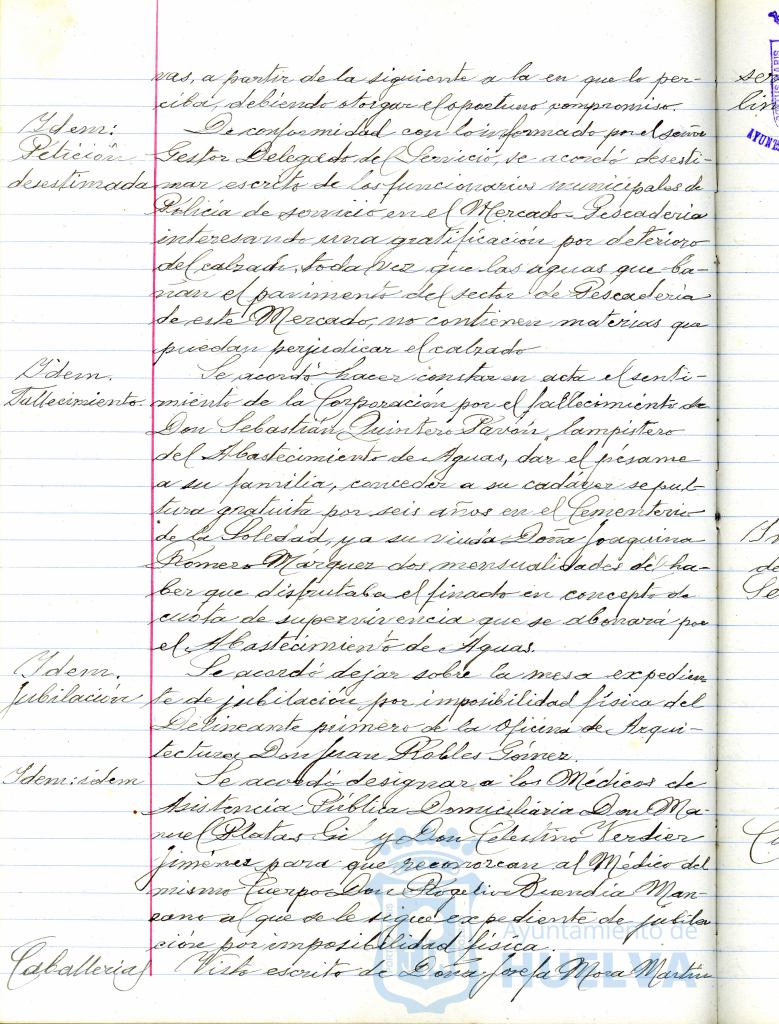 vas, a partir de la siguiente a la en que lo per-
ciba, debiendo otorgar el oportuno compromiso.
Idem:
Petición
desestimada
De conformidad con lo informado por el señor
Gestor Delegado del Servicio, se acordó desesti-
mar escrito de los funcionarios municipales de
Policía de servicio en el Mercado-Pescadería
interesando una gratificación por deterioro
del calzado, toda vez que las aguas que ba-
ñan el pavimento del sector de Pescadería
de este Mercado, no contienen materias que
puedan perjudicar el calzado
Idem.
Fallecimiento.
Se acordó hacer constar en acta el senti-
miento de la Corporación por el fallecimiento de
Don Sebastián Quintero Pavón, lampistero
del Abastecimiento de Aguas, dar el pésame
a su familia, conceder a su cadáver sepul-
tura gratuita por seis años en el Cementerio
de la Soledad, y a su viuda Doña Joaquina
Romero Márquez dos mensualidades del ha-
ber que disfrutaba el finado en concepto de
cuota de supervivencia que se abonará por
el Abastecimiento de Aguas.
Idem.
Jubilación
Se acordó dejar sobre la mesa expedien-
te de jubilación por imposibilidad física del
Delineante primero de la Oficina de Arqui-
tectura Don Juan Robles Gómez.
Idem: idem
Se acordó designar a los Médicos de
Asistencia Pública Domiciliaria Don Ma-
nuel Platas Gil y Don Celestino Verdier
Jiménez para que reconozcan al Médico del
mismo Cuerpo Don Rogelio Buendía Man-
zano al que se le sigue expediente de jubila-
ción por imposibilidad física.
Caballerías
Visto escrito de Doña Josefa Mora Martín
Ayuntamiento de
HUELVA